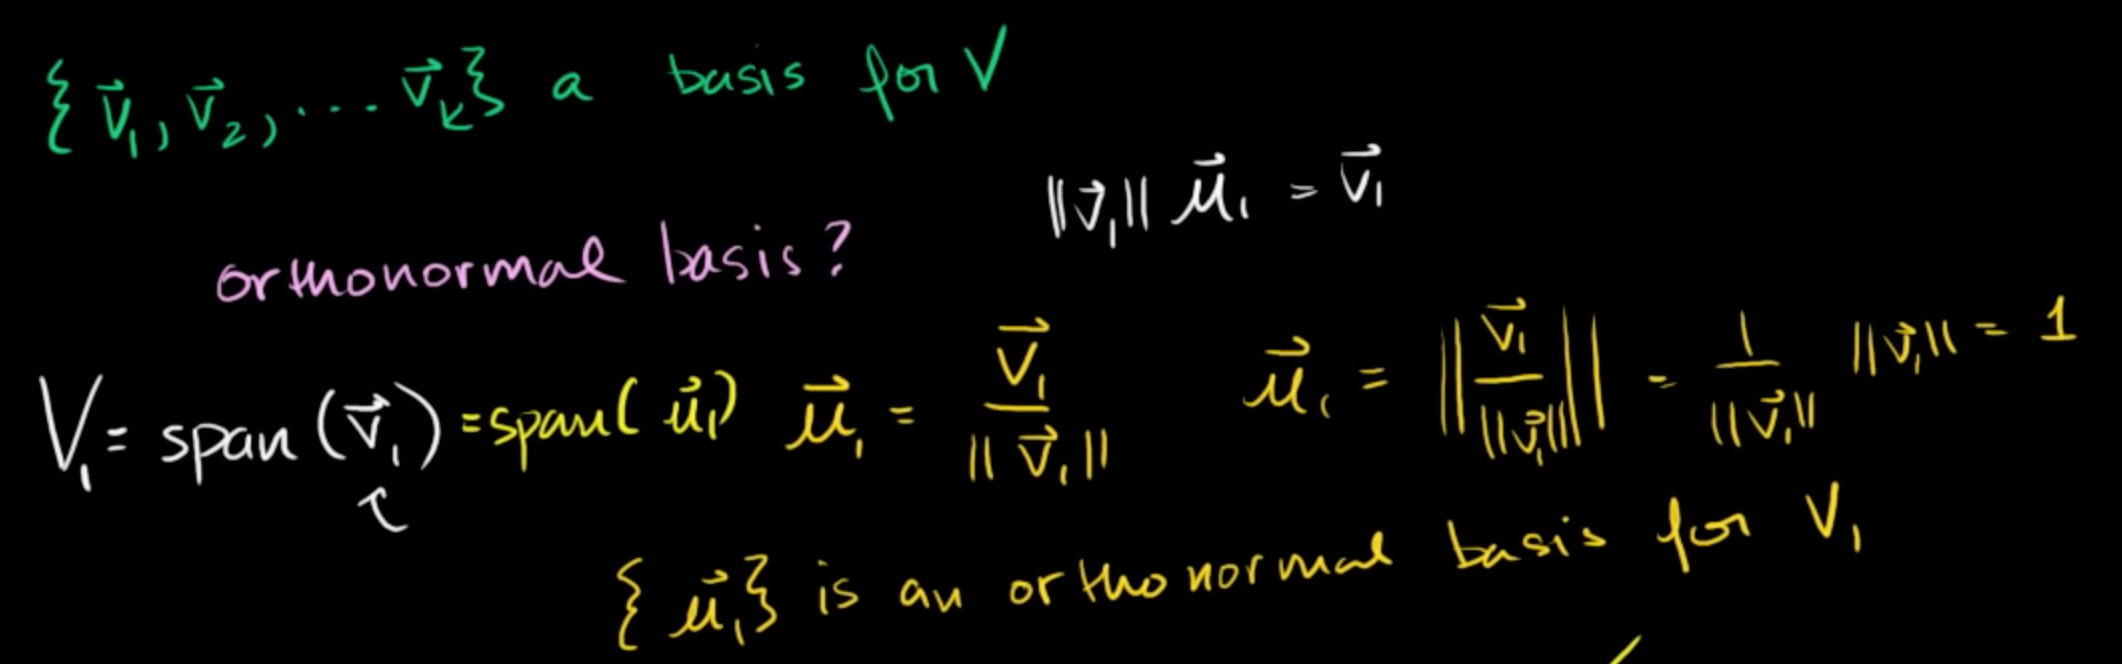 {v⃗₁, v⃗₂, ... v⃗ₖ} a basis for V
‖v⃗₁‖ u⃗₁ = v⃗₁
orthonormal basis?
V₁ = span(v⃗₁) = span(u⃗₁) u⃗₁ = v⃗₁ / ‖v⃗₁‖ u⃗₁ = ‖ v⃗₁ / ‖v⃗₁‖ ‖ = 1 / ‖v⃗₁‖ ‖v⃗₁‖ = 1
{u⃗₁} is an orthonormal basis for V₁